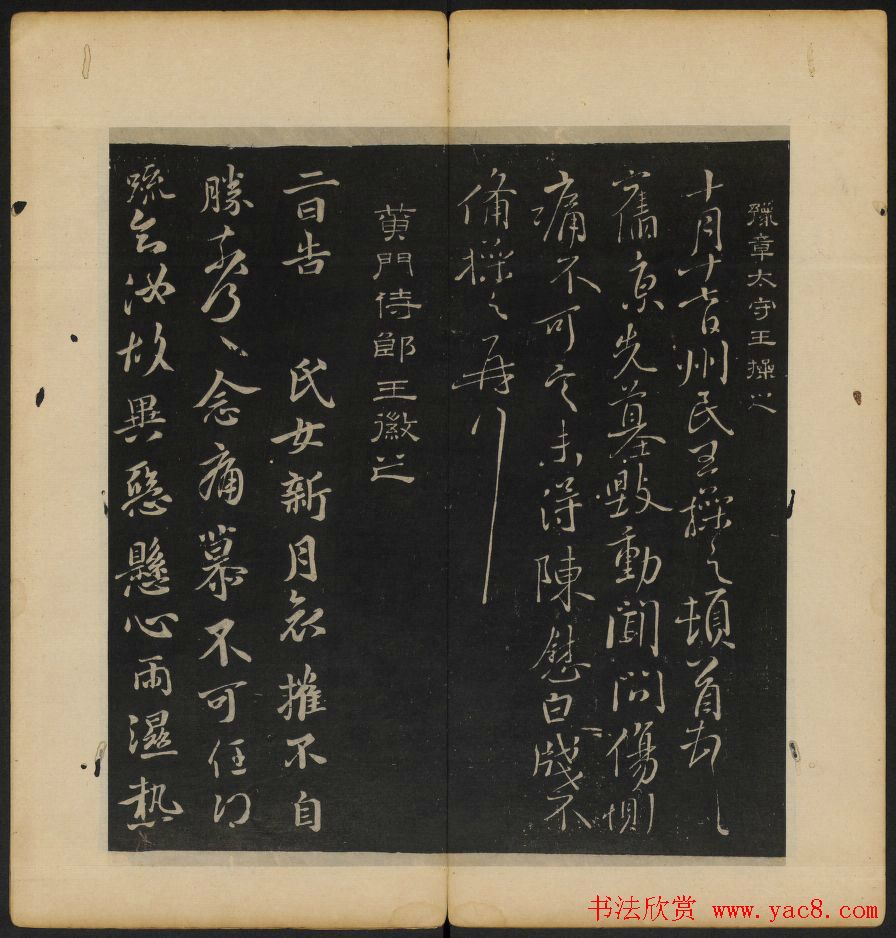 豫章太守王操之
十月十七日州民王操之頓首
舊京先墓毀動聞問傷惻
痛不可言未得陳慰白牋不
備操之再行
黄門侍郎王徽之
二日告 氏女新月哀摧不自
勝奈何奈何念痛慕不可任得
疏知汝故異惡懸心雨濕熱
书法欣赏 www.yac8.com